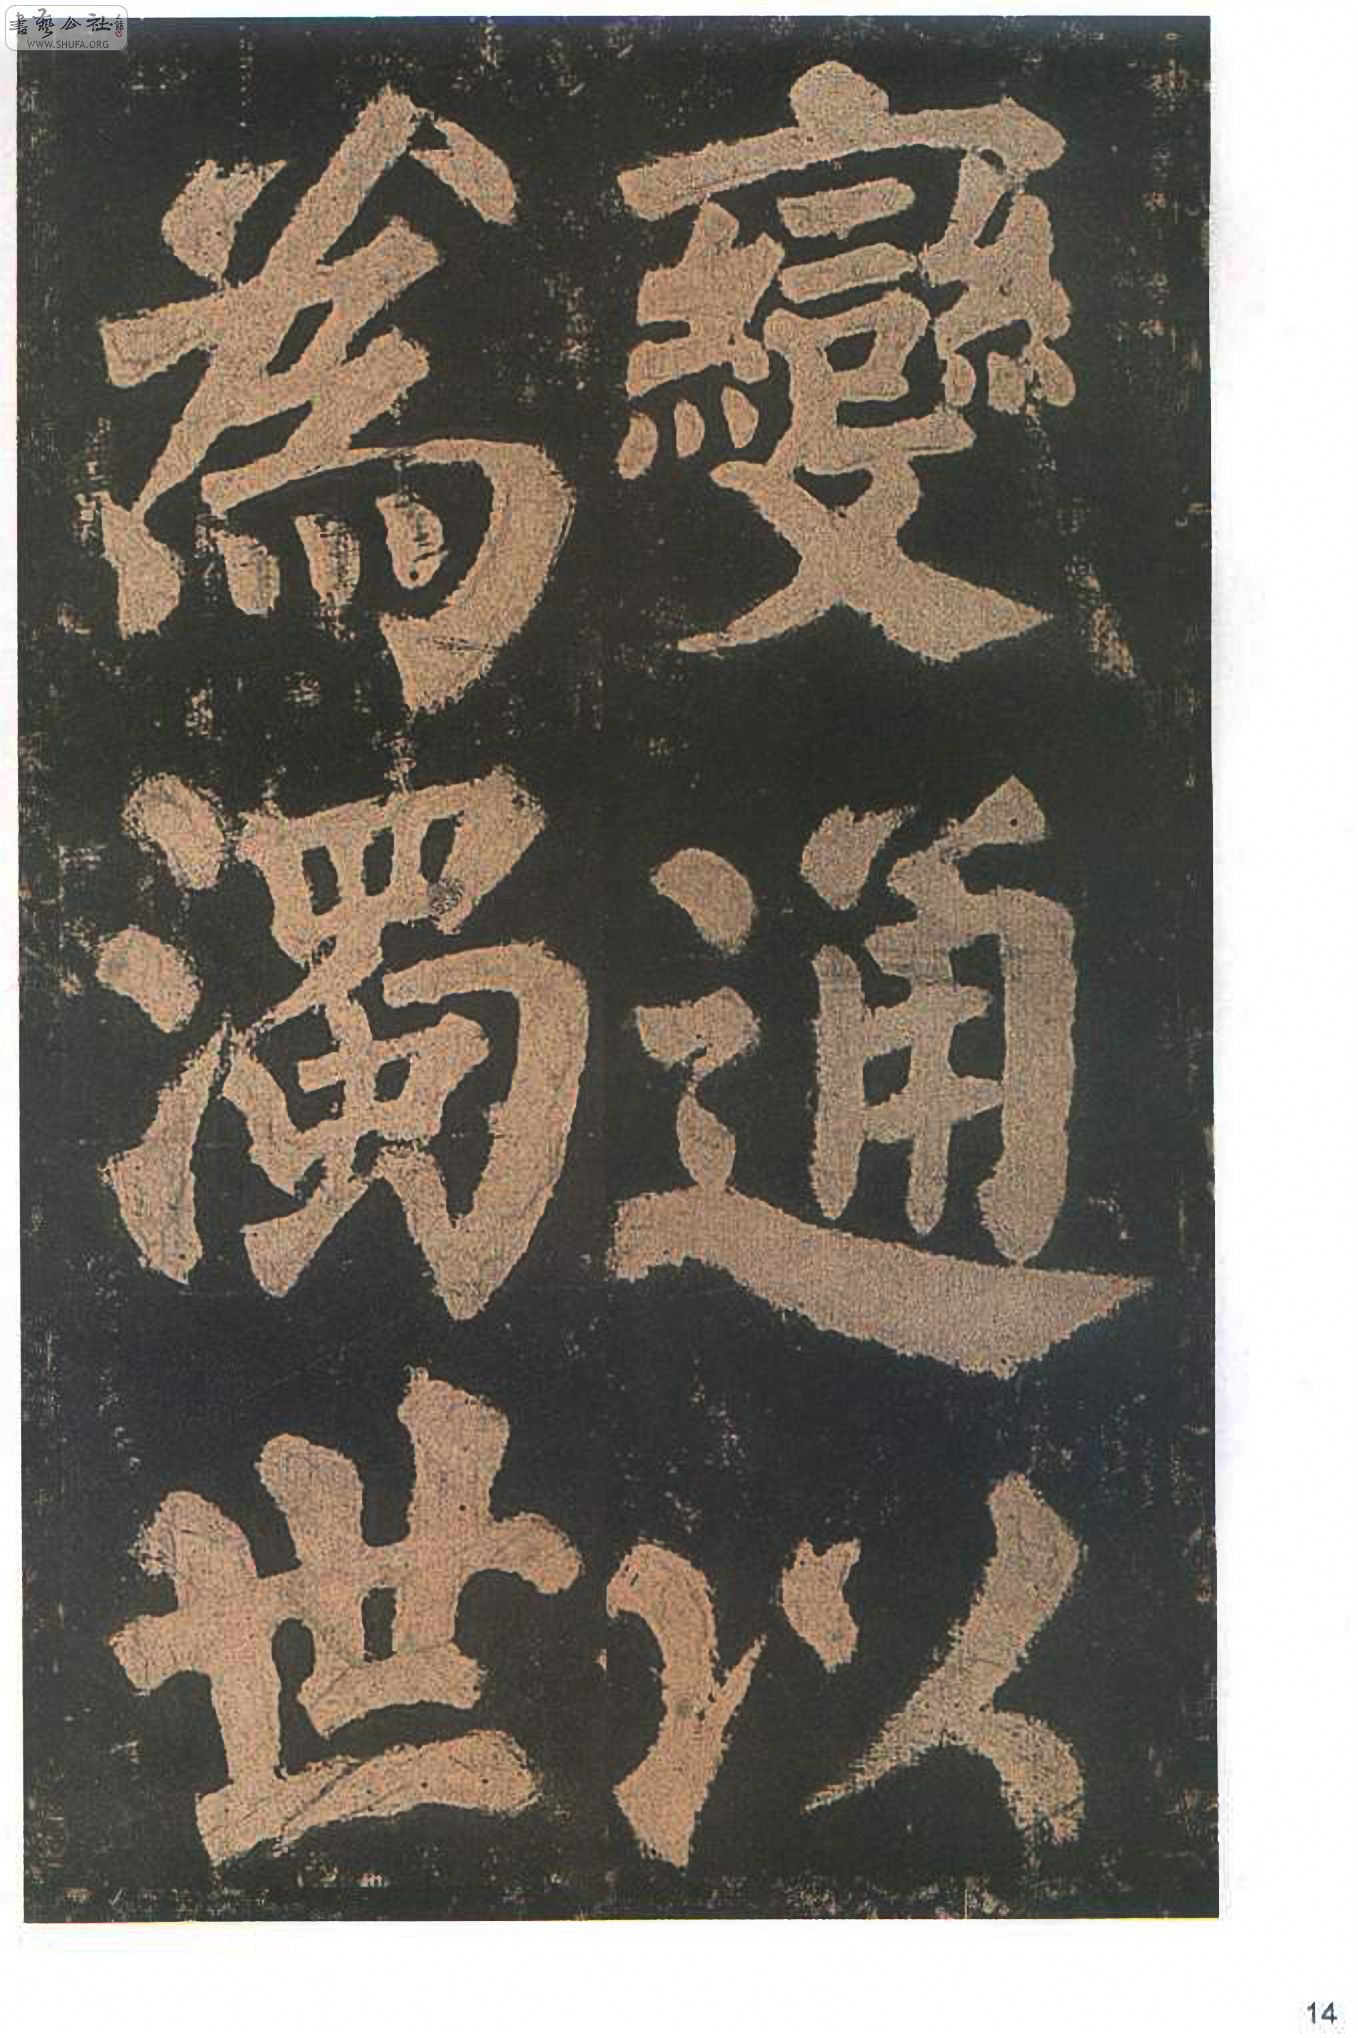 書藝公社
WWW.SHUFA.ORG
變通以
為濁世
14